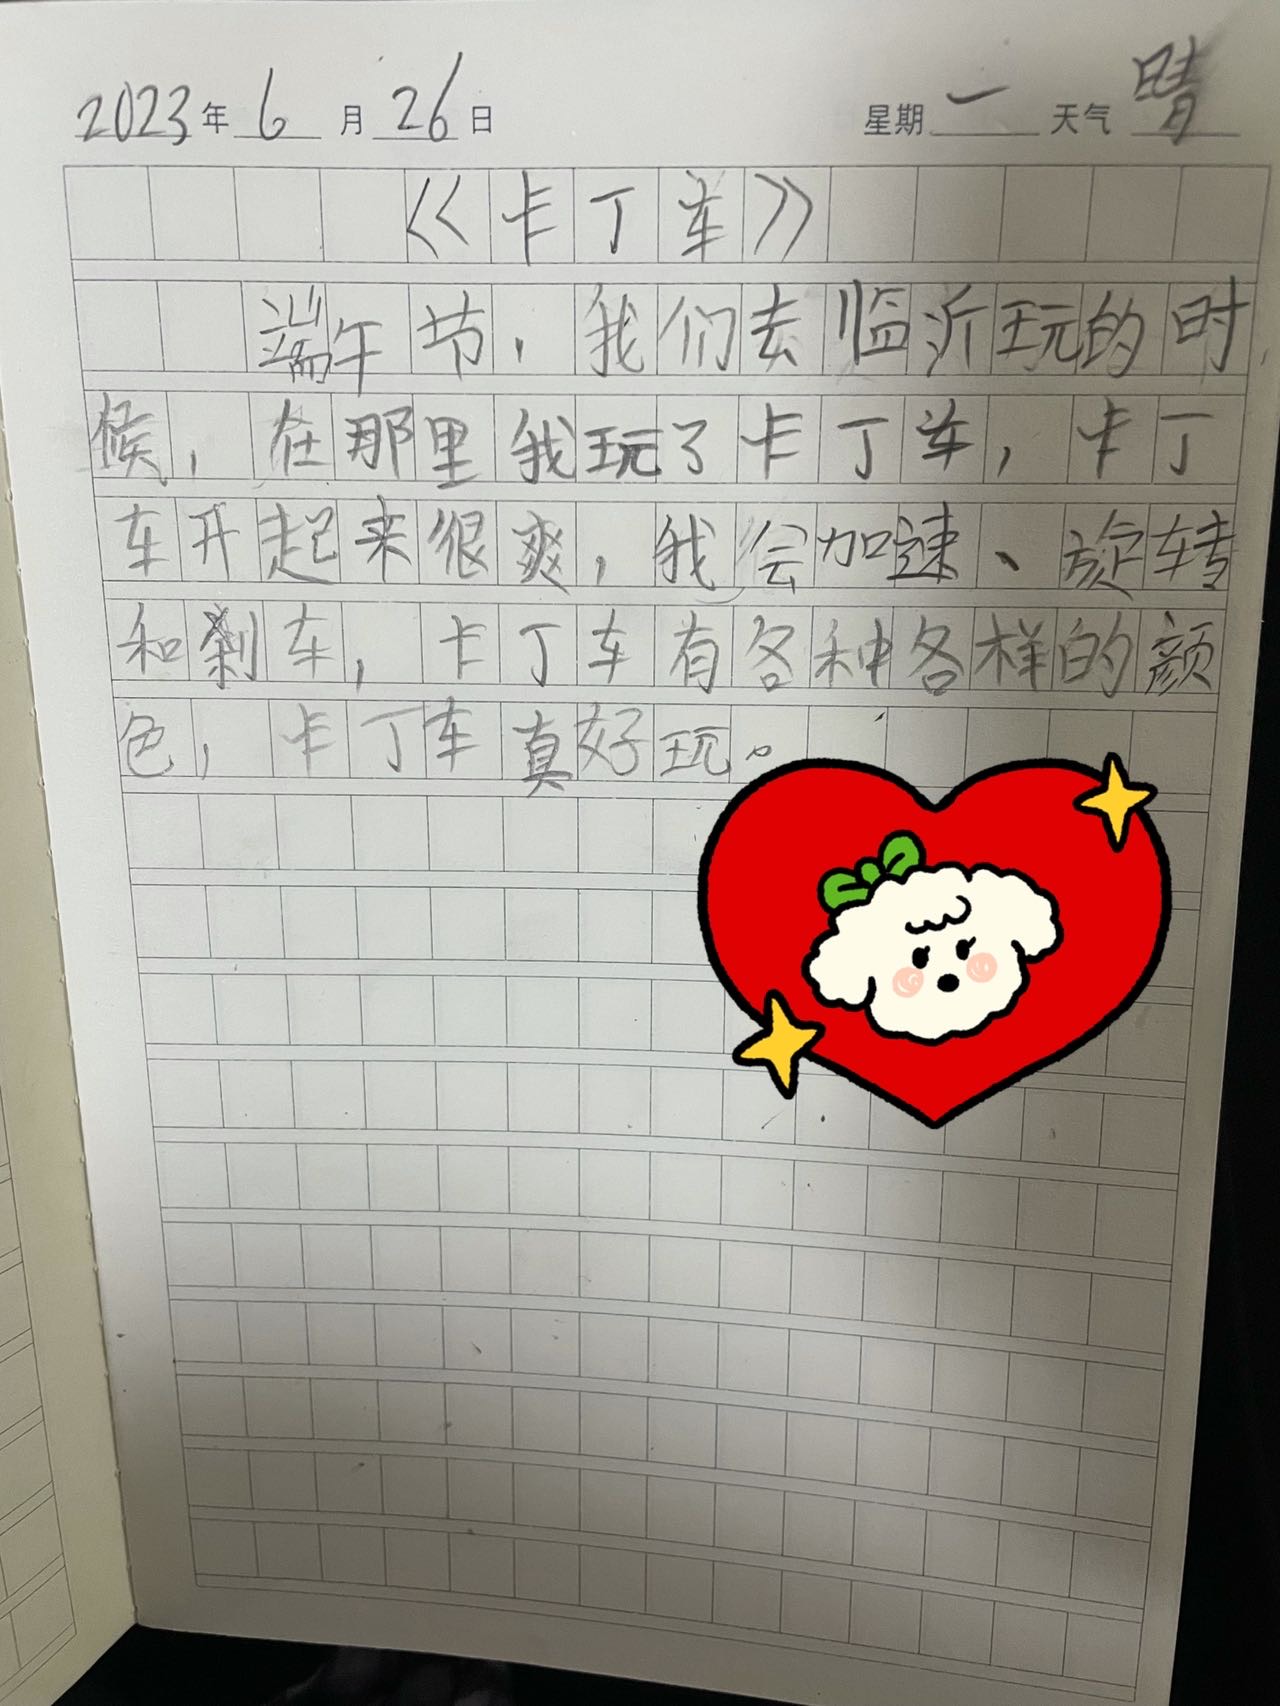 2023年 6 月 26 日 星期 一 天气 晴
《卡丁车》
端午节，我们去临沂玩的时
候，在那里我玩了卡丁车，卡丁
车开起来很爽，我会加速、旋转
和刹车，卡丁车有各种各样的颜
色，卡丁车真好玩。